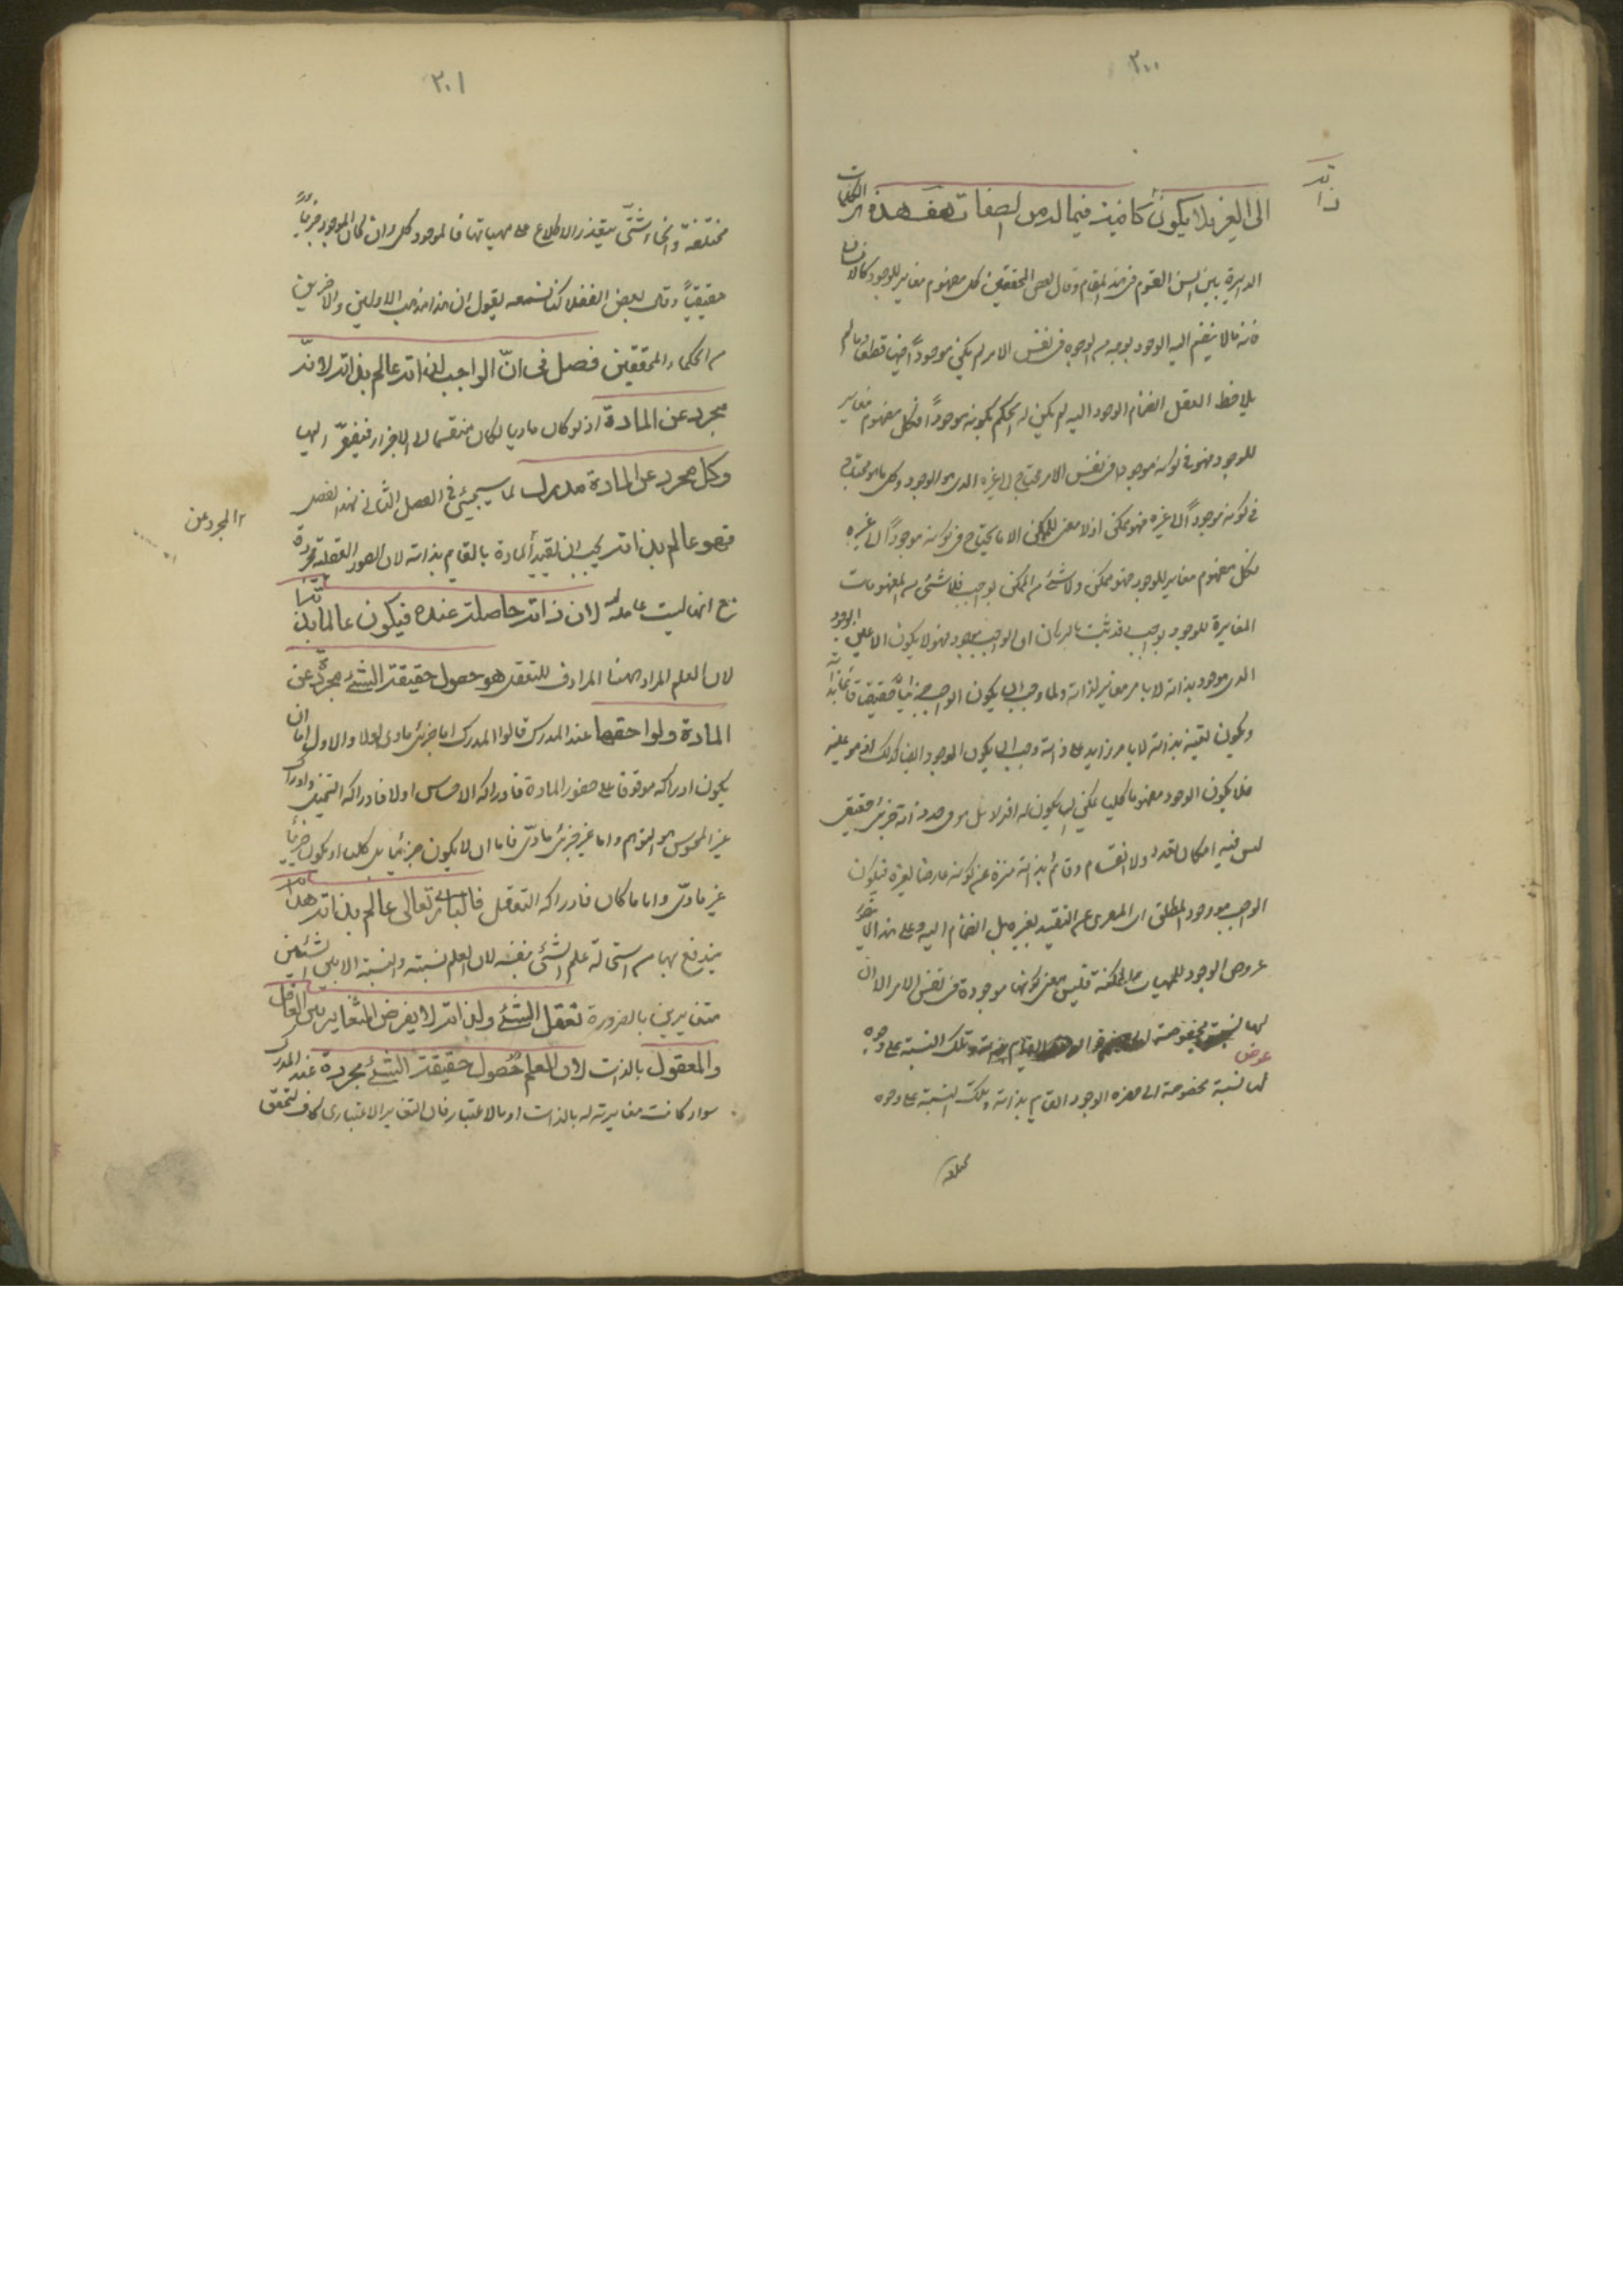 ٢٠٠
ذاته
الى الغير فلا يكون كافية فيما له من الصفات هف هذه الكلمات
الدايرة بين السن القوم فى هذا المقام وقال بعض المحققين كل مفهوم مغاير للوجود كالانسان
فانه مالا ينضم اليه الوجود بوجه من الوجوه فى نفس الامر لم يكن موجودا فيها قطعا وما لم
يلاحظ العقل انضمام الوجود اليه لم يكن له الحكم بكونه موجودًا فكل مفهوم مغاير
للوجود فهو فى كونه موجودا فى نفس الامر محتاج الى غيره الذى هو الوجود وكل ما هو محتاج
فى كونه موجودًا الى غيره فهو ممكن اذ لا معنى للممكن الا ما يحتاج فى كونه موجودًا الى غيره
فكل مفهوم مغاير للوجود فهو ممكن ولا شئ من الممكن بواجب فلا شئ من المفهومات
المغايرة للوجود بواجب وقد ثبت بالبرهان ان الواجب موجود فهو لا يكون الا عين الوجود
الذى موجود بذاته لا بامر مغاير لذاته ولما وجب ان يكون الواجب جزئيًا حقيقيا قائما بذاته
ويكون تعينه بذاته لا بامر زايد على ذاته وجب ان يكون الوجود ايضا كذلك اذ هو عينه
فلا يكون الوجود مفهوما كليا يمكن ان يكون له افراد بل هو فى حد ذاته جزئى حقيقى
ليس فيه امكان تعدد ولا انقسام وقائم بذاته منزه عن كونه عارضا لغيره فيكون
الواجب هو الوجود المطلق اى المعرى عن التقييد بغيره بل انضمام اليه وعلى هذا لا يتصور
عروض الوجود للمهيات الممكنة فليس معنى كونها موجودة فى نفس الامر الا ان
لها نسبة مخصوصة وتلك النسبة على وجوه
عوض
لها نسبة مخصوصة الى حضرة الوجود القايم بذاته وتلك النسبة على وجوه
مختلفة
٢٠١
مختلفة وانحاء شتى يتعذر الاطلاع على مهياتها فالموجود كلى وان كان الوجود جزئيًا
حقيقيًا وقال بعض الفضلاء كنا نسمعه يقول ان هذا مذهب الاولين والاخرين
من الحكماء المحققين فصل فى انّ الواجب لذاته عالم بذاته لانّه
مجرد عن المادة اذ لو كان ماديا لكان منقسما الى الاجزاء فيفتقر اليها
وكل مجرد عن المادة مدرك لما سيجئ فى الفصل الثانى لهذا الفصل
المجرد عن
فهو عالم بذاته يجب ان تقييد المادة بالقايم بذاته لان الصور العقلية مجردة
مع انها ليست عاملة لان ذاته حاصلة عنده فيكون عالما بذاته
لان العلم المراد ههنا المرادف للتعقل هو حصول حقيقة الشئ مجردة عن
المادة ولواحقها عند المدرك قالوا المدرك اما جزئى مادى او لا والاول اما ان
يكون ادراكه موقوفا على حضور المادة فادراكه الاحساس او لا فادراكه التخيل وادراك
غير المحسوس هو التوهم واما غير جزئى مادى فاما ان لا يكون جزئيا بل كليا او يكون جزئيا
غير مادى واياما كان فادراكه التعقل فالبارى تعالى عالم بذاته هداية
يندفع بها من استحالة علم الشئ بنفسه لان العلم نسبة والنسبة الا بين الشيئين
متغايرين بالضرورة تعقل الشئ ولذاته لا يفرض التغاير بين العاقل
والمعقول بالذات لان العلم حصول حقيقة الشئ مجردة عند المدرك
سواء كانت مغايرته له بالذات او بالاعتبار فان التغاير الاعتبارى كاف لتحقق